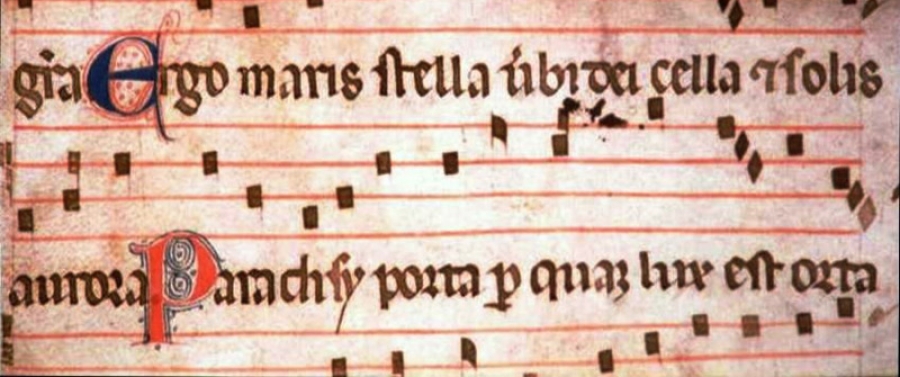 gr̄a Ergo maris stella u̅bi dei cella ⁊ solis
aurora Paradisy porta ꝑ quaꝫ lux est orta